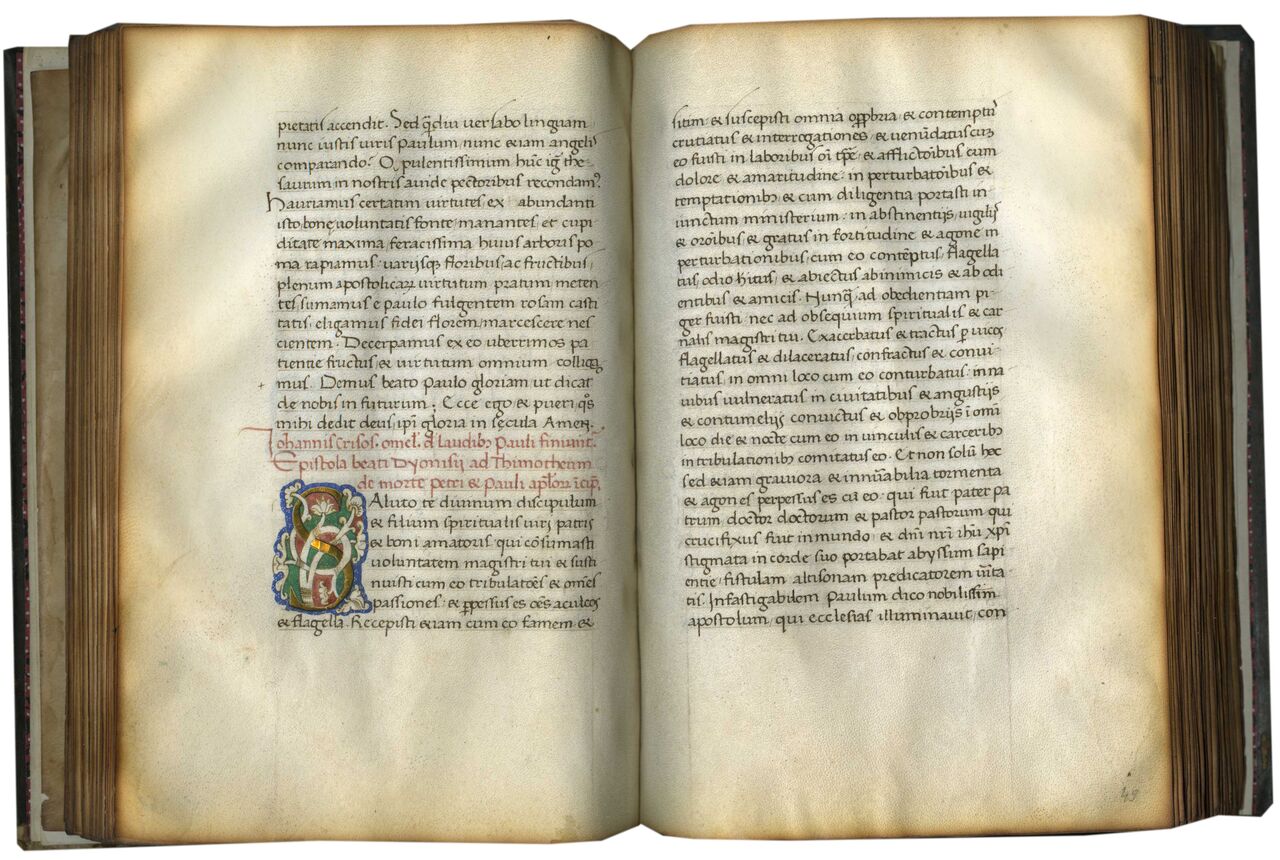 pietatis accendit. Sed q̃diu verlabo linguam
nunc iustis viris Paulum, nunc etiam angelis
comparando? Opulentissimum huc̃ ig̃ the-
saurum in nostris auide pectoribus recondam?
Hauriamus certatim virtutes ex abundanti
isto bonę voluntatis fonte manantes et cupi
ditate maxima feracissima huius arboris po
ma rapiamus: variisq; floribus, ac fructibus,
plenum apostolicaꝝ virtutum pratum meten
tes, sumamus e paulo fulgentem rosam casti
tatis, eligamus fidei florem, marcescere nes
cientem. Decerpamus ex eo uberrimos pa
tientie fructus, & virtutum omnium collig
mus. Demus beato Paulo gloriam ut dicat
de nobis in futurum. Ecce ego & pueri q̃s
mihi dedit deus, ip̃i gloria in secula Amen.
Iohannis Crisos. omel. d̃ laudibꝫ Pauli finiunt.
Epistola beati Dyonisij ad Thimotheum
de morte petri & Pauli ap̃loꝝ ĩcip̃.
Saluto te diuinum discipulum
& filium spiritualis viri patris
& boni amatoris, qui cõsumasti
voluntatem magistri tui & susti
nuisti cum eo tribulatões & om̃es
passiones, & ꝑpessus es oẽs aculeos
& flagella. Recepisti etiam cum eo famem &
sitim & suscepisti omnia opp̃bria & contemptũ
crutiatus & interrogationes & venũdatus cũ
eo fuisti in laboribus oĩ tp̃e & afflictoĩbus cum
dolore & amaritudine in perturbatoĩbus &
temptationibꝫ & cum diligentia portasti in
iunctum ministerium: in abstinentijs, uigilijs
& orõibus & gratus in fortitudine & agone in
perturbationibus, cum eo contẽptus, flagella
tus, odio hitus & abiectus ab inimicis & ab odi
entibus & amicis. Nunq̃ ad obedientiam pi-
ger fuisti nec ad obsequium spiritualis & car
nalis magistri tui. Exacerbatus & tractus ꝑ vicos
flagellatus & dilaceratus, confractus & conui
tiatus, in omni loco cum eo conturbatus: in na
uibus vulneratus in ciuitatibus & angustijs
& contumelijs conuictus & obprobrijs ĩ omĩ
loco die & nocte cum eo in vinculis & carceribꝫ
in tribulationibꝫ comitatus eo. Et non solũ hec
sed etiam grauiora & innũabilia tormenta
& agones perpessus es cũ eo: qui fuit pater pa
trum, doctor doctorum & pastor pastorum qui
crucifixus fuit in mundo & dñi nr̃i ihũ xp̃i
stigmata in corde suo portabat abyssum sapi
entie, fistulam altisonam predicatorem ũita-
tis. Infastigabilem Paulum dico nobilissim̃
apostolum, qui ecclesias illuminauit, con
49